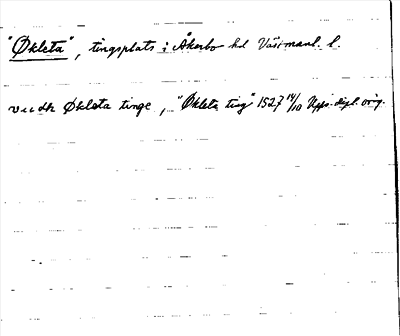 "Økleta", tingsplats i Åkerbo hd Västmanl. l.
vidh Økleta tinge, "Økleta ting" 1527 14/10 Upps. dipl. orig.